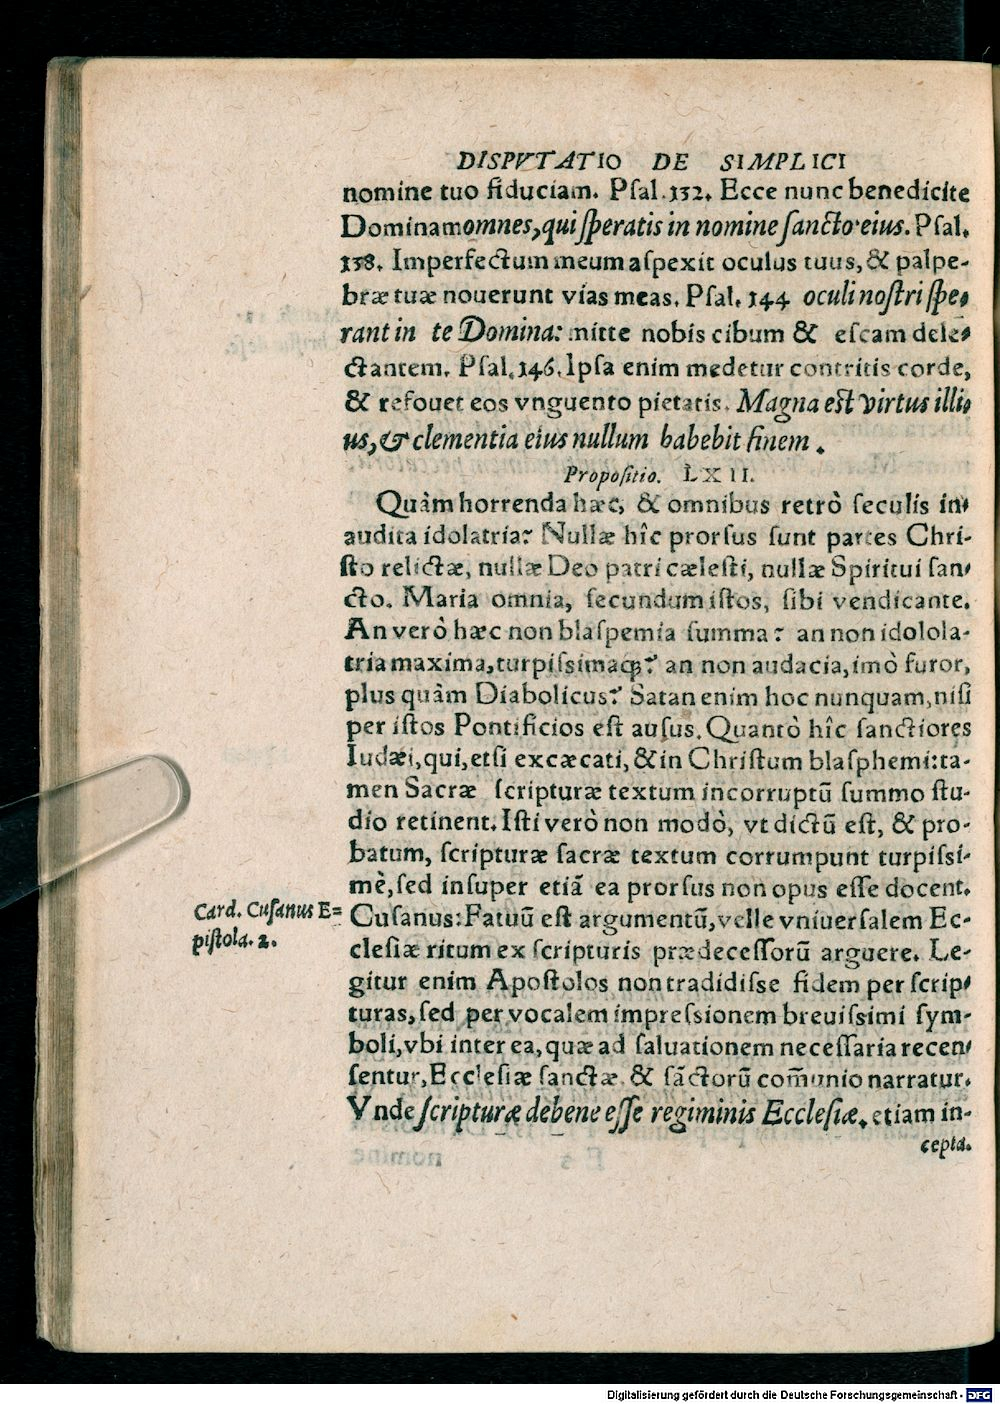 DISPVTATIO DE SIMPLICI
nomine tuo fiduciam. Pſal. 132. Ecce nunc benedicite
Dominam omnes, qui ſperatis in nomine ſancto eius. Pſal.
138. Imperfectum meum aſpexit oculus tuus, & palpe-
bræ tuæ nouerunt vias meas. Pſal. 144 oculi noſtri ſpe-
rant in te Domina: mitte nobis cibum & eſcam dele-
ctantem. Pſal. 146. Ipſa enim medetur contritis corde,
& refouet eos vnguento pietatis. Magna eſt virtus illi-
us, & clementia eius nullum babebit finem.
Propoſitio. LXII.
Quàm horrenda hæc, & omnibus retrò ſeculis in-
audita idolatria? Nullæ hîc prorſus ſunt partes Chri-
ſto relictæ, nullæ Deo patri cæleſti, nullæ Spiritui ſan-
cto. Maria omnia, ſecundum iſtos, ſibi vendicante.
An verò hæc non blaſpemia ſumma? an non idolola-
tria maxima, turpiſsimaq́;? an non audacia, imò furor,
plus quàm Diabolicus? Satan enim hoc nunquam, niſi
per iſtos Pontificios eſt auſus. Quantò hîc ſanctiores
Iudæi, qui, etſi excæcati, & in Chriſtum blaſphemi: ta-
men Sacræ ſcripturæ textum incorruptũ ſummo ſtu-
dio retinent. Iſti verò non modò, vt dictũ eſt, & pro-
batum, ſcripturæ ſacræ textum corrumpunt turpiſsi-
mè, ſed inſuper etiã ea prorſus non opus eſſe docent.
Card. Cuſanus E=
piſtola. 2.
Cuſanus: Fatuũ eſt argumentũ, velle vniuerſalem Ec-
cleſiæ ritum ex ſcripturis prædeceſſorũ arguere. Le-
gitur enim Apoſtolos non tradidiſse fidem per ſcrip-
turas, ſed per vocalem impreſsionem breuiſsimi ſym-
boli, vbi inter ea, quæ ad ſaluationem neceſſaria recen-
ſentur, Eccleſiæ ſanctæ & ſãctorũ com̃unio narratur.
Vnde ſcripturæ de bene eſſe regiminis Eccleſiæ, etiam in-
cepta.
Digitalisierung gefördert durch die Deutsche Forschungsgemeinschaft - DFG